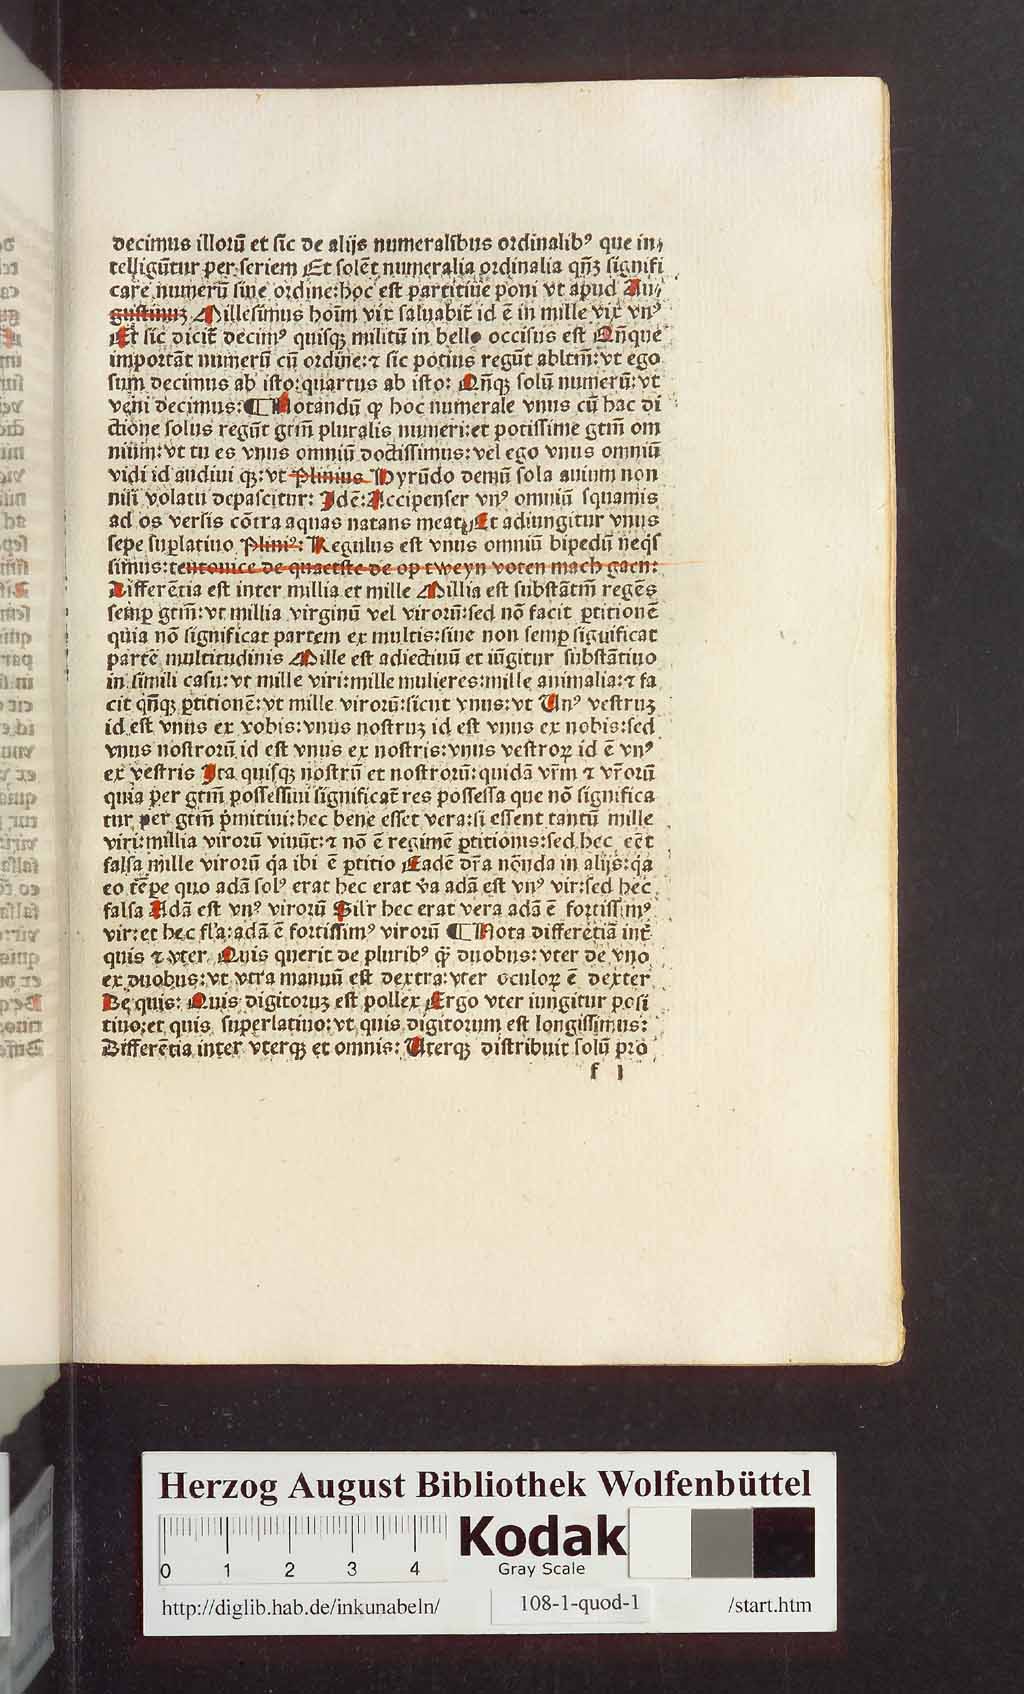 decimus illorū et sic de alijs numeralibus ordinalibꝰ que in
telligūtur per seriem Et solēt numeralia ordinalia qn̄ꝫ signifi
care numerū sine ordine: hoc est partitiue poni vt apud Au
gustinuꝫ Millesimus hoīm vix saluabit̄ id ē in mille vix vnꝰ
Et sic dicit̄ decimꝰ quisqꝫ militū in bello occisus est Qn̄que
importāt numerū cū ordine: ⁊ sic potius regūt ablt̄m: vt ego
sum decimus ab isto: quartus ab isto: Qn̄qꝫ solū numerū: vt
veni decimus: ¶ Notandū ꝙ hoc numerale vnus cū hac di
ctione solus regūt gt̄m pluralis numeri: et potissime gt̄m om
nium: vt tu es vnus omniū doctissimus: vel ego vnus omniū
vidi id audiui qꝫ: vt Plinius Hyrūdo demū sola auium non
nisi volatu depascitur: Idē: Accipenser vnꝰ omniū squamis
ad os versis cōtra aquas natans meat Et adiungitur vnus
sepe suꝑlatiuo Pliniꝰ: Regulus est vnus omniū bipedū neq̄s
simus: teutonice de quaetste de op tweyn voten mach gaen:
Differētia est inter millia et mille Millia est substātm̄ regēs
semꝑ gt̄m: vt millia virginū vel virorū: sed nō facit ꝑtitionē
quia nō significat partem ex multis: siue non semꝑ significat
partē multitudinis Mille est adiectiuū et iūgitur substātiuo
in simili casu: vt mille viri: mille mulieres: mille animalia: ⁊ fa
cit qn̄qꝫ ꝑtitionē: vt mille virorū: sicut vnus: vt Unꝰ vestruꝫ
id est vnus ex vobis: vnus nostruꝫ id est vnus ex nobis: sed
vnus nostrorū id est vnus ex nostris: vnus vestroꝝ id ē vnꝰ
ex vestris Ita quisqꝫ nostrū et nostrorū: quidā vr̄m ⁊ vr̄orū
quia per gt̄m possessiui significāt res possessa que nō significa
tur per gt̄m p̄mitiui: hec bene esset vera: si essent tantū mille
viri: millia virorū viuūt: ⁊ nō ē regimē ꝑtitionis: sed hec eēt
falsa mille virorū q̄a ibi ē ꝑtitio Eadē dr̄a nōnda in alijs: q̄a
eo tēpe quo adā solꝰ erat hec erat v̄a adā est vnꝰ vir: sed hec
falsa Adā est vnꝰ virorū Silr̄ hec erat vera adā ē fortissimꝰ
vir: et hec fl̄a: adā ē fortissimꝰ virorū ¶ Nota differētiā int̄
quis ⁊ vter Quis querit de pluribꝰ q̄ꝫ duobus: vter de vno
ex duobus: vt vtra manuū est dextra: vter oculoꝝ ē dexter
Be quis: Quis digitoruꝫ est pollex Ergo vter iungitur posi
tiuo: et quis superlatiuo: vt quis digitorum est longissimus:
Differētia inter vterqꝫ et omnis: Uterqꝫ distribuit solū pro
f 1
Herzog August Bibliothek Wolfenbüttel
0 1 2 3 4
Kodak
Gray Scale
http://diglib.hab.de/inkunabeln/ 108-1-quod-1 /start.htm